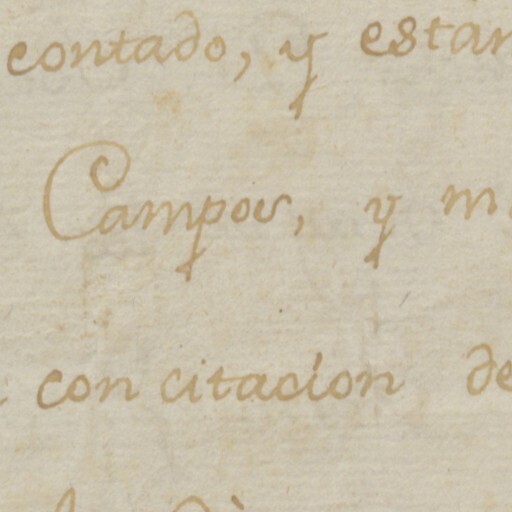 contado, y estan
Campos, y m
con citacion de